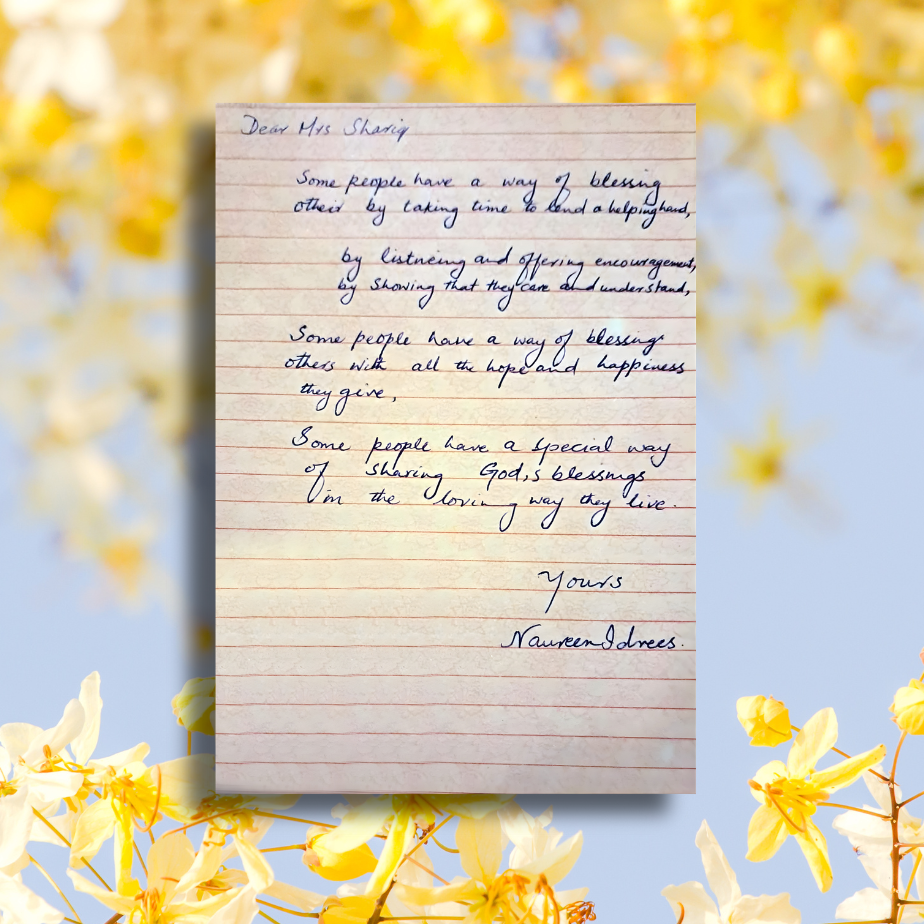 Dear Mrs Shariq
Some people have a way of blessing
others by taking time to lend a helping hand,
by listneing and offering encouragement,
by showing that they care and understand,
Some people have a way of blessing
others with all the hope and happiness
they give,
Some people have a special way
of sharing God,s blessings
in the loving way they live.
Yours
Naureen Idrees.